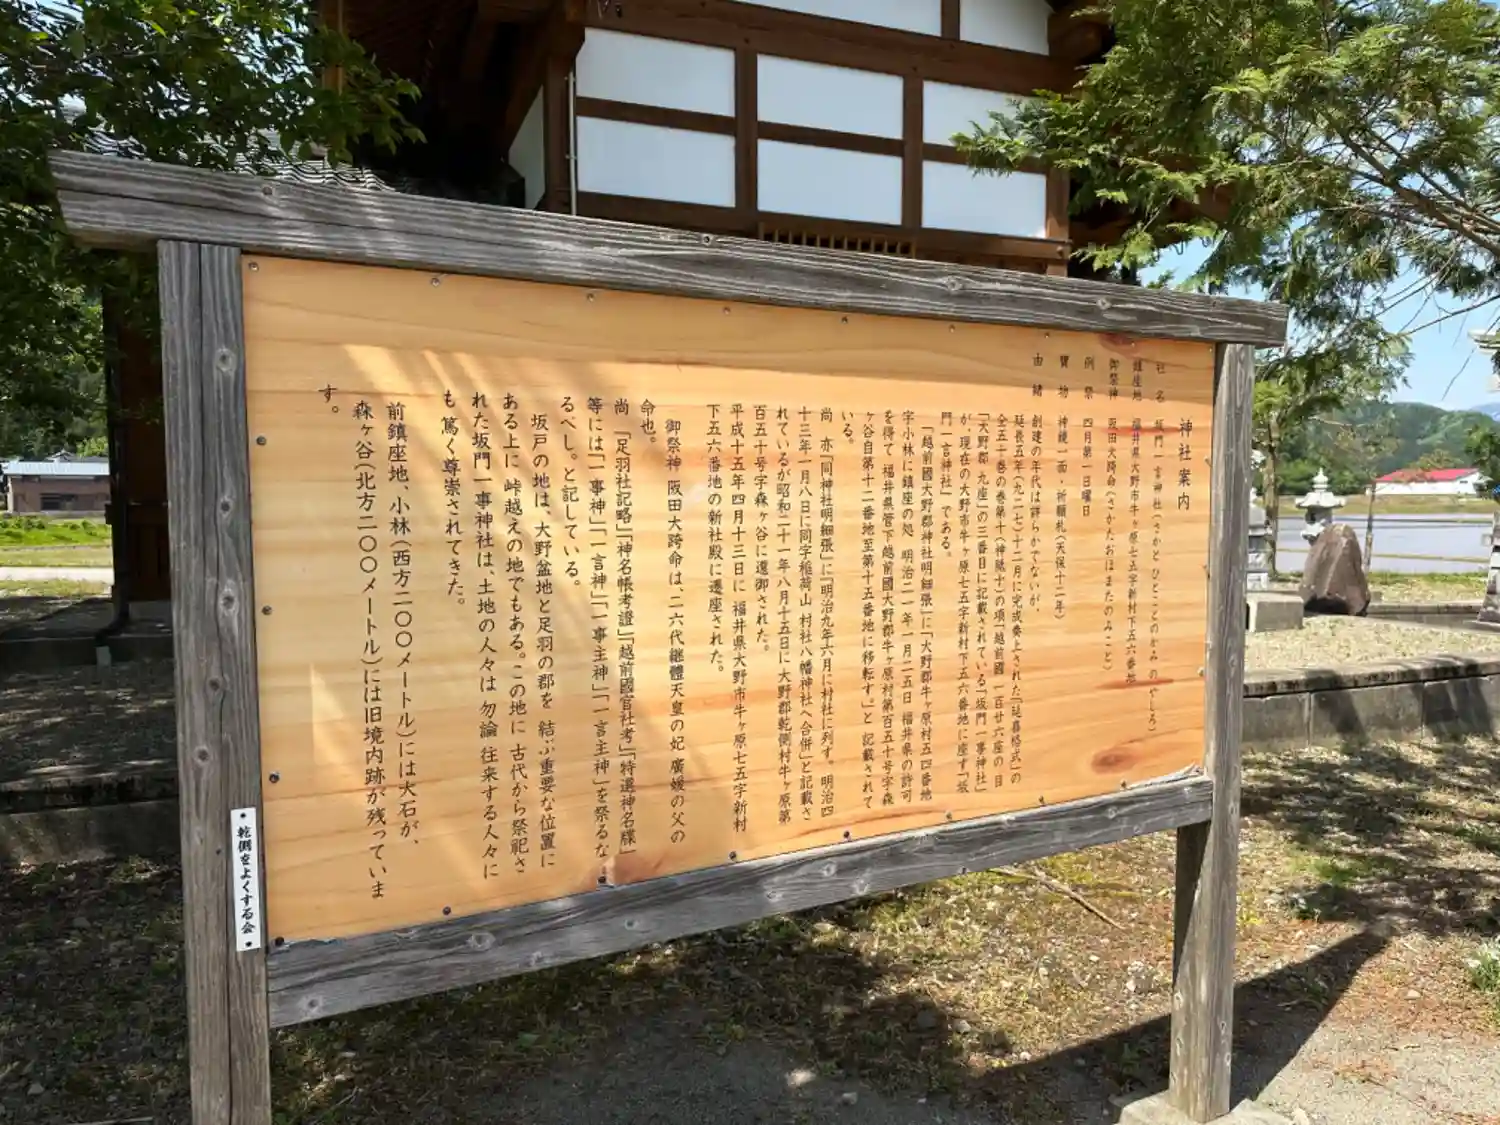 神社案内
社 名 坂門一言神社(さかと ひとことのかみ のやしろ)
鎮座地 福井県大野市牛ヶ原七五字新村下五六番地
御祭神 阪田大跨命(さかたおほまたのみこと)
例 祭 四月第一日曜日
寶 物 神鏡一面・祈願札(天保十二年)
由 緒 創建の年代は詳らかでないが、
延長五年(九二七)十二月に完成奏上された「延喜格式」の
全五十巻の巻第十(神祇十)の項「越前國 一百廿六座の 目
「大野郡 九座」の三番目に記載されている「坂門一事神社」
が、現在の大野市牛ヶ原七五字新村下五六番地に座す「坂
門一言神社」である。
「越前國大野郡神社明細張」に「大野郡牛ヶ原村五四番地
字小林に鎮座の処 明治二一年一月二五日 福井県の許可
を得て 福井県管下越前國大野郡牛ヶ原村第百五十号字森
ヶ谷自第十二番地至第十五番地に移転す」と 記載されて
いる。
尚 亦「同神社明細張」に「明治九年六月に村社に列す。明治四
十三年一月八日に同字稲荷山 村社八幡神社へ合併」と記載さ
れているが昭和二十一年八月十五日に大野郡乾側村牛ヶ原第
百五十号字森ヶ谷に還御された。
平成十五年四月十三日に 福井県大野市牛ヶ原七五字新村
下五六番地の新社殿に遷座された。
御祭神 阪田大跨命は、二六代継體天皇の妃 廣媛の父の
命也。
尚 「足羽社記略」「神名帳考證」「越前國官社考」「特選神名牒」
等には「一事神」「一言神」「一事主神」「一言主神」を祭るな
るべし。と記している。
坂戸の地は、大野盆地と足羽の郡を 結ぶ重要な位置に
ある上に 峠越えの地でもある。この地に 古代から祭祀さ
れた坂門一事神社は、土地の人々は 勿論 往来する人々に
も 篤く尊崇されてきた。
前鎮座地、小林(西方二〇〇メートル)には大石が、
森ヶ谷(北方二〇〇メートル)には旧境内跡が残っていま
す。
乾側をよくする会